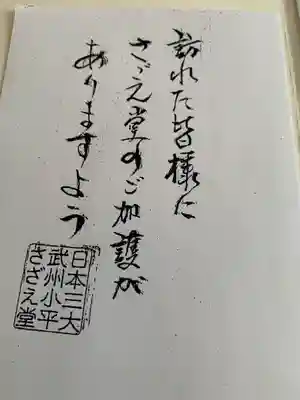 訪れた皆様に
さゞえ堂のご加護が
ありますよう
日本三大
武州小平
さざえ堂